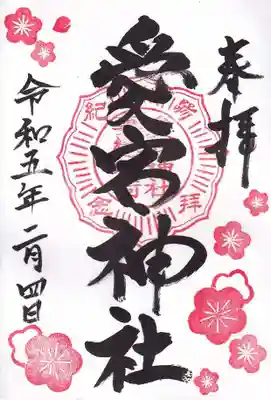 奉拝
愛宕神社
令和五年二月四日
参拝
紀念